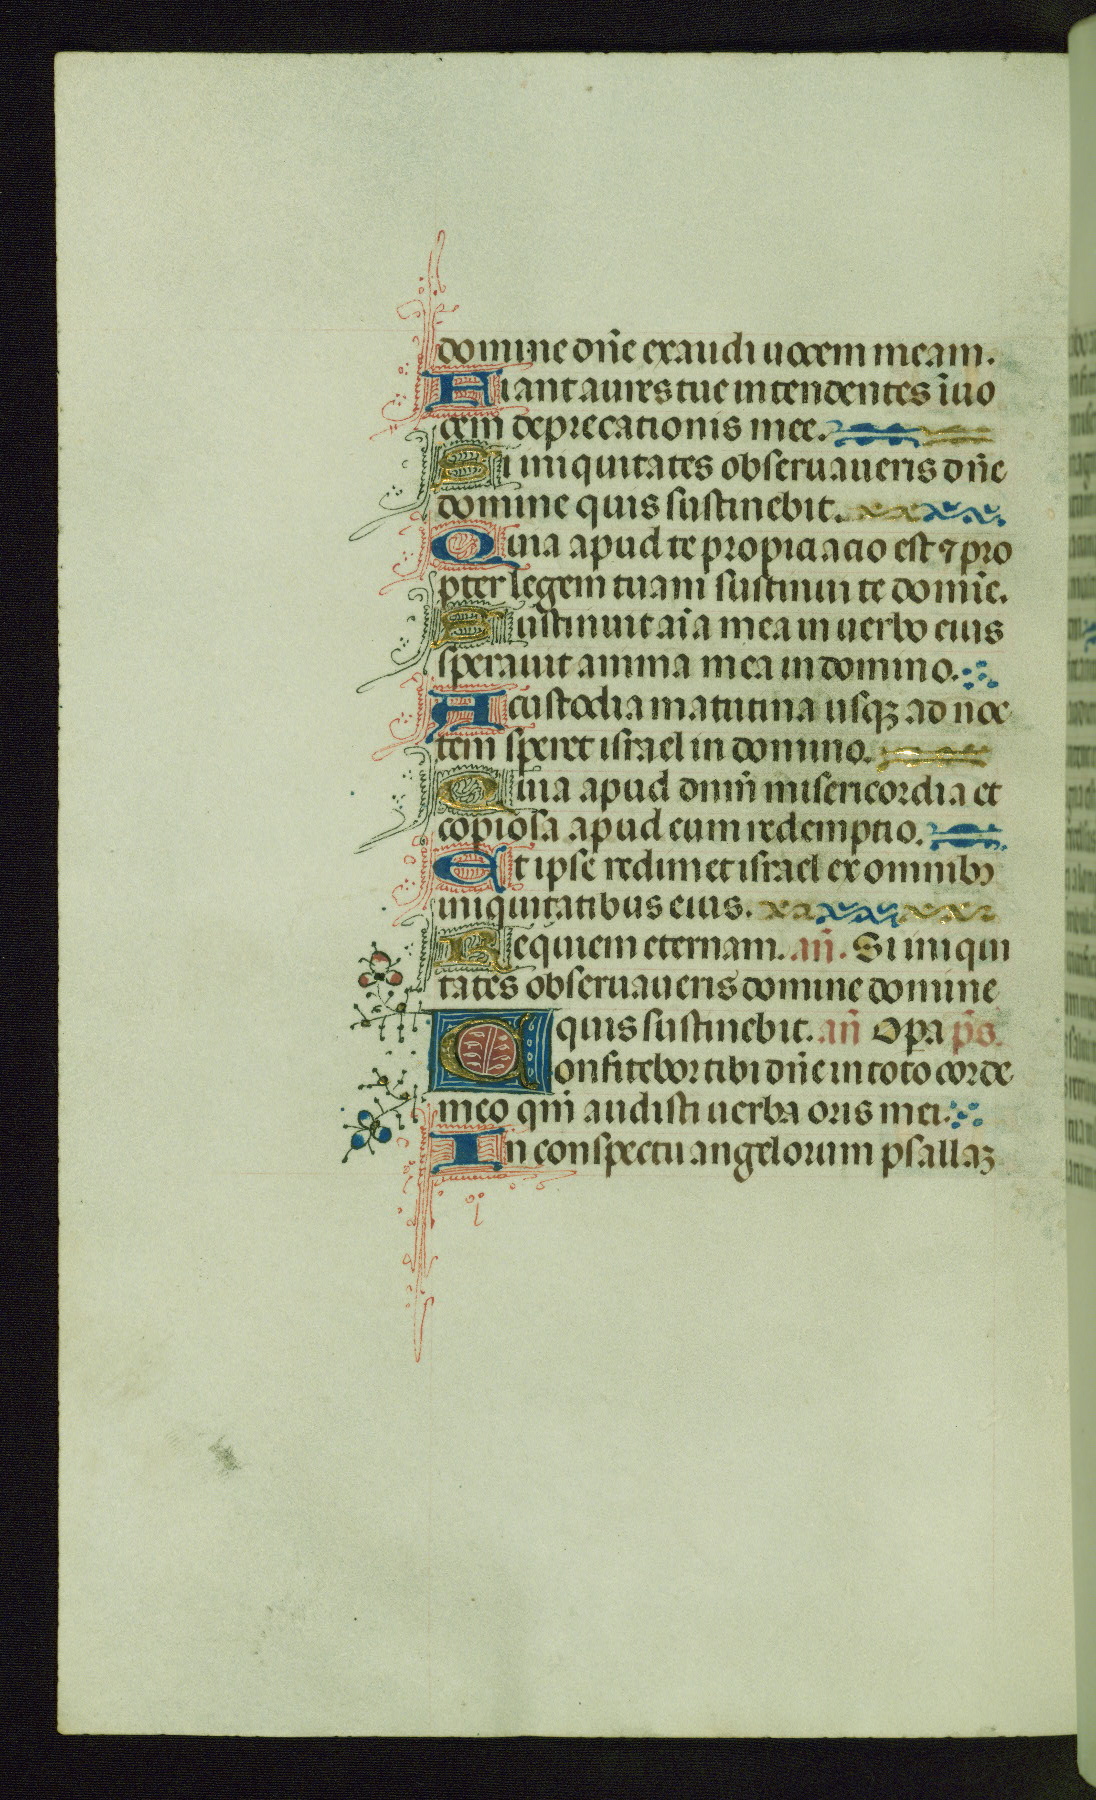 domine dn̄e exaudi uocem meam.
Fiant aures tue intendentes ī uo
cem deprecationis mee.
Si iniquitates obseruaueris dn̄e
domine quis sustinebit.
Quia apud te propiciacio est ⁊ pro
pter legem tuam sustinui te domīe.
Sustinuit aīa mea in uerbo eius
sperauit anima mea in domino.
A custodia matutina usqꝫ ad noc
tem speret israel in domino.
Quia apud dnm̄ misericordia et
copiosa apud eum redemptio.
Et ipse redimet israel ex omnibꝫ
iniquitatibus eius.
Requiem eternam. añ. Si iniqui
tates obseruaueris domine domine
quis sustinebit. añ Opa p̄s.
Confitebor tibi dn̄e in toto corde
meo qm̄ audisti uerba oris mei.
In conspectu angelorum psallaꝫ